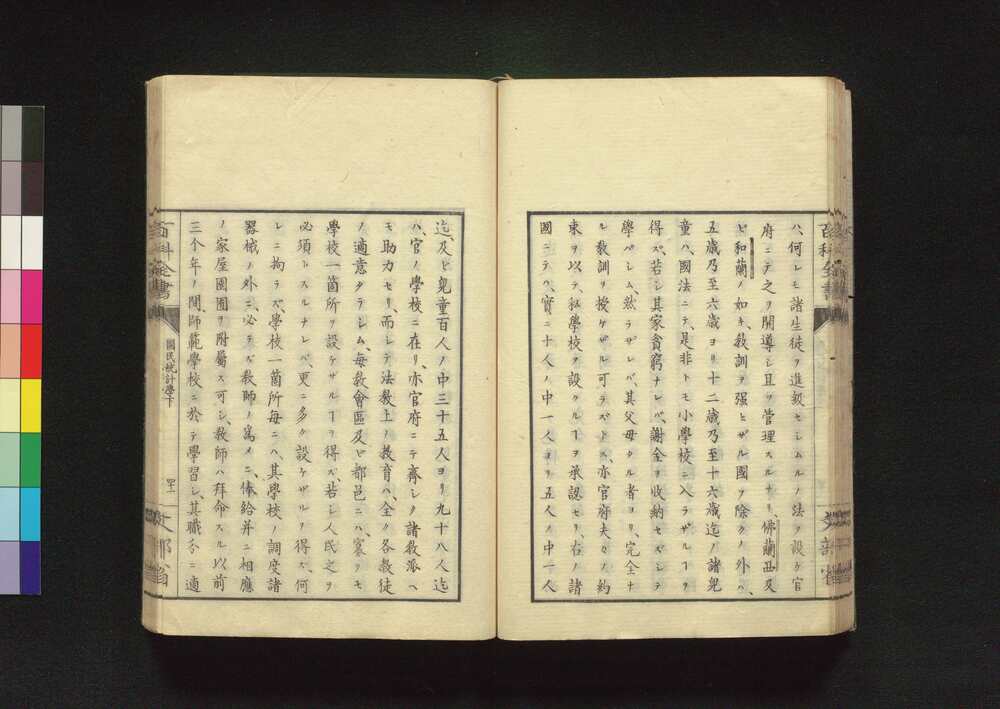 ハ、何レモ諸生徒ヲ進級セシムルノ法ヲ設ケ官
府ニテ之ヲ開導シ且ツ管理スルナリ、佛蘭西及
ビ和蘭ノ如キ、教訓ヲ强ヒザル國ヲ除クノ外ハ、
五歳乃至六歳ヨリ十二歳乃至十六歳迄ノ諸兒
童ハ、國法ニテ、是非トモ小學校ニ入ラザルヿヲ
得ズ、若シ其家貪窮ナレバ、謝金ヲ收納セズシテ
學バシム、然ラザレバ、其父母タル者ヨリ、完全ナ
ル教訓ヲ授ケザル可ラズトス、亦官府夫々ノ約
束ヲ以テ、私學校ヲ設クルヿヲ承認セリ、右ノ諸
國ニテハ、實ニ十人ノ中一人ヨリ五人ノ中一人
迄、及ビ兒童百人ノ中三十五人ヨリ九十八人迄
ハ、官ノ學校ニ在リ、亦官府ニテ齋シク諸教派ヘ
モ助力セリ、而シテ法教上ノ教育ハ、全ク各教徒
ノ適意タラシム、每教會區及ビ都邑ニハ、寡クモ
學校一箇所ヲ設ケザルヿヲ得ズ、若シ人民之ヲ
必須トスルナレバ、更ニ多ク設ケザルヲ得ズ、何
レニ拘ラズ、學校一箇所每ニハ、其學校ノ調度諸
器械ノ外ニ、必ラズ教師ノ爲メニ、俸給并ニ相應
ノ家屋園圃ヲ附屬ス可シ、教師ハ拜命スル以前
三个年ノ間、師範學校ニ於テ學習シ、其職分ニ適
百科全書
國民統計學下
四十二
文部省